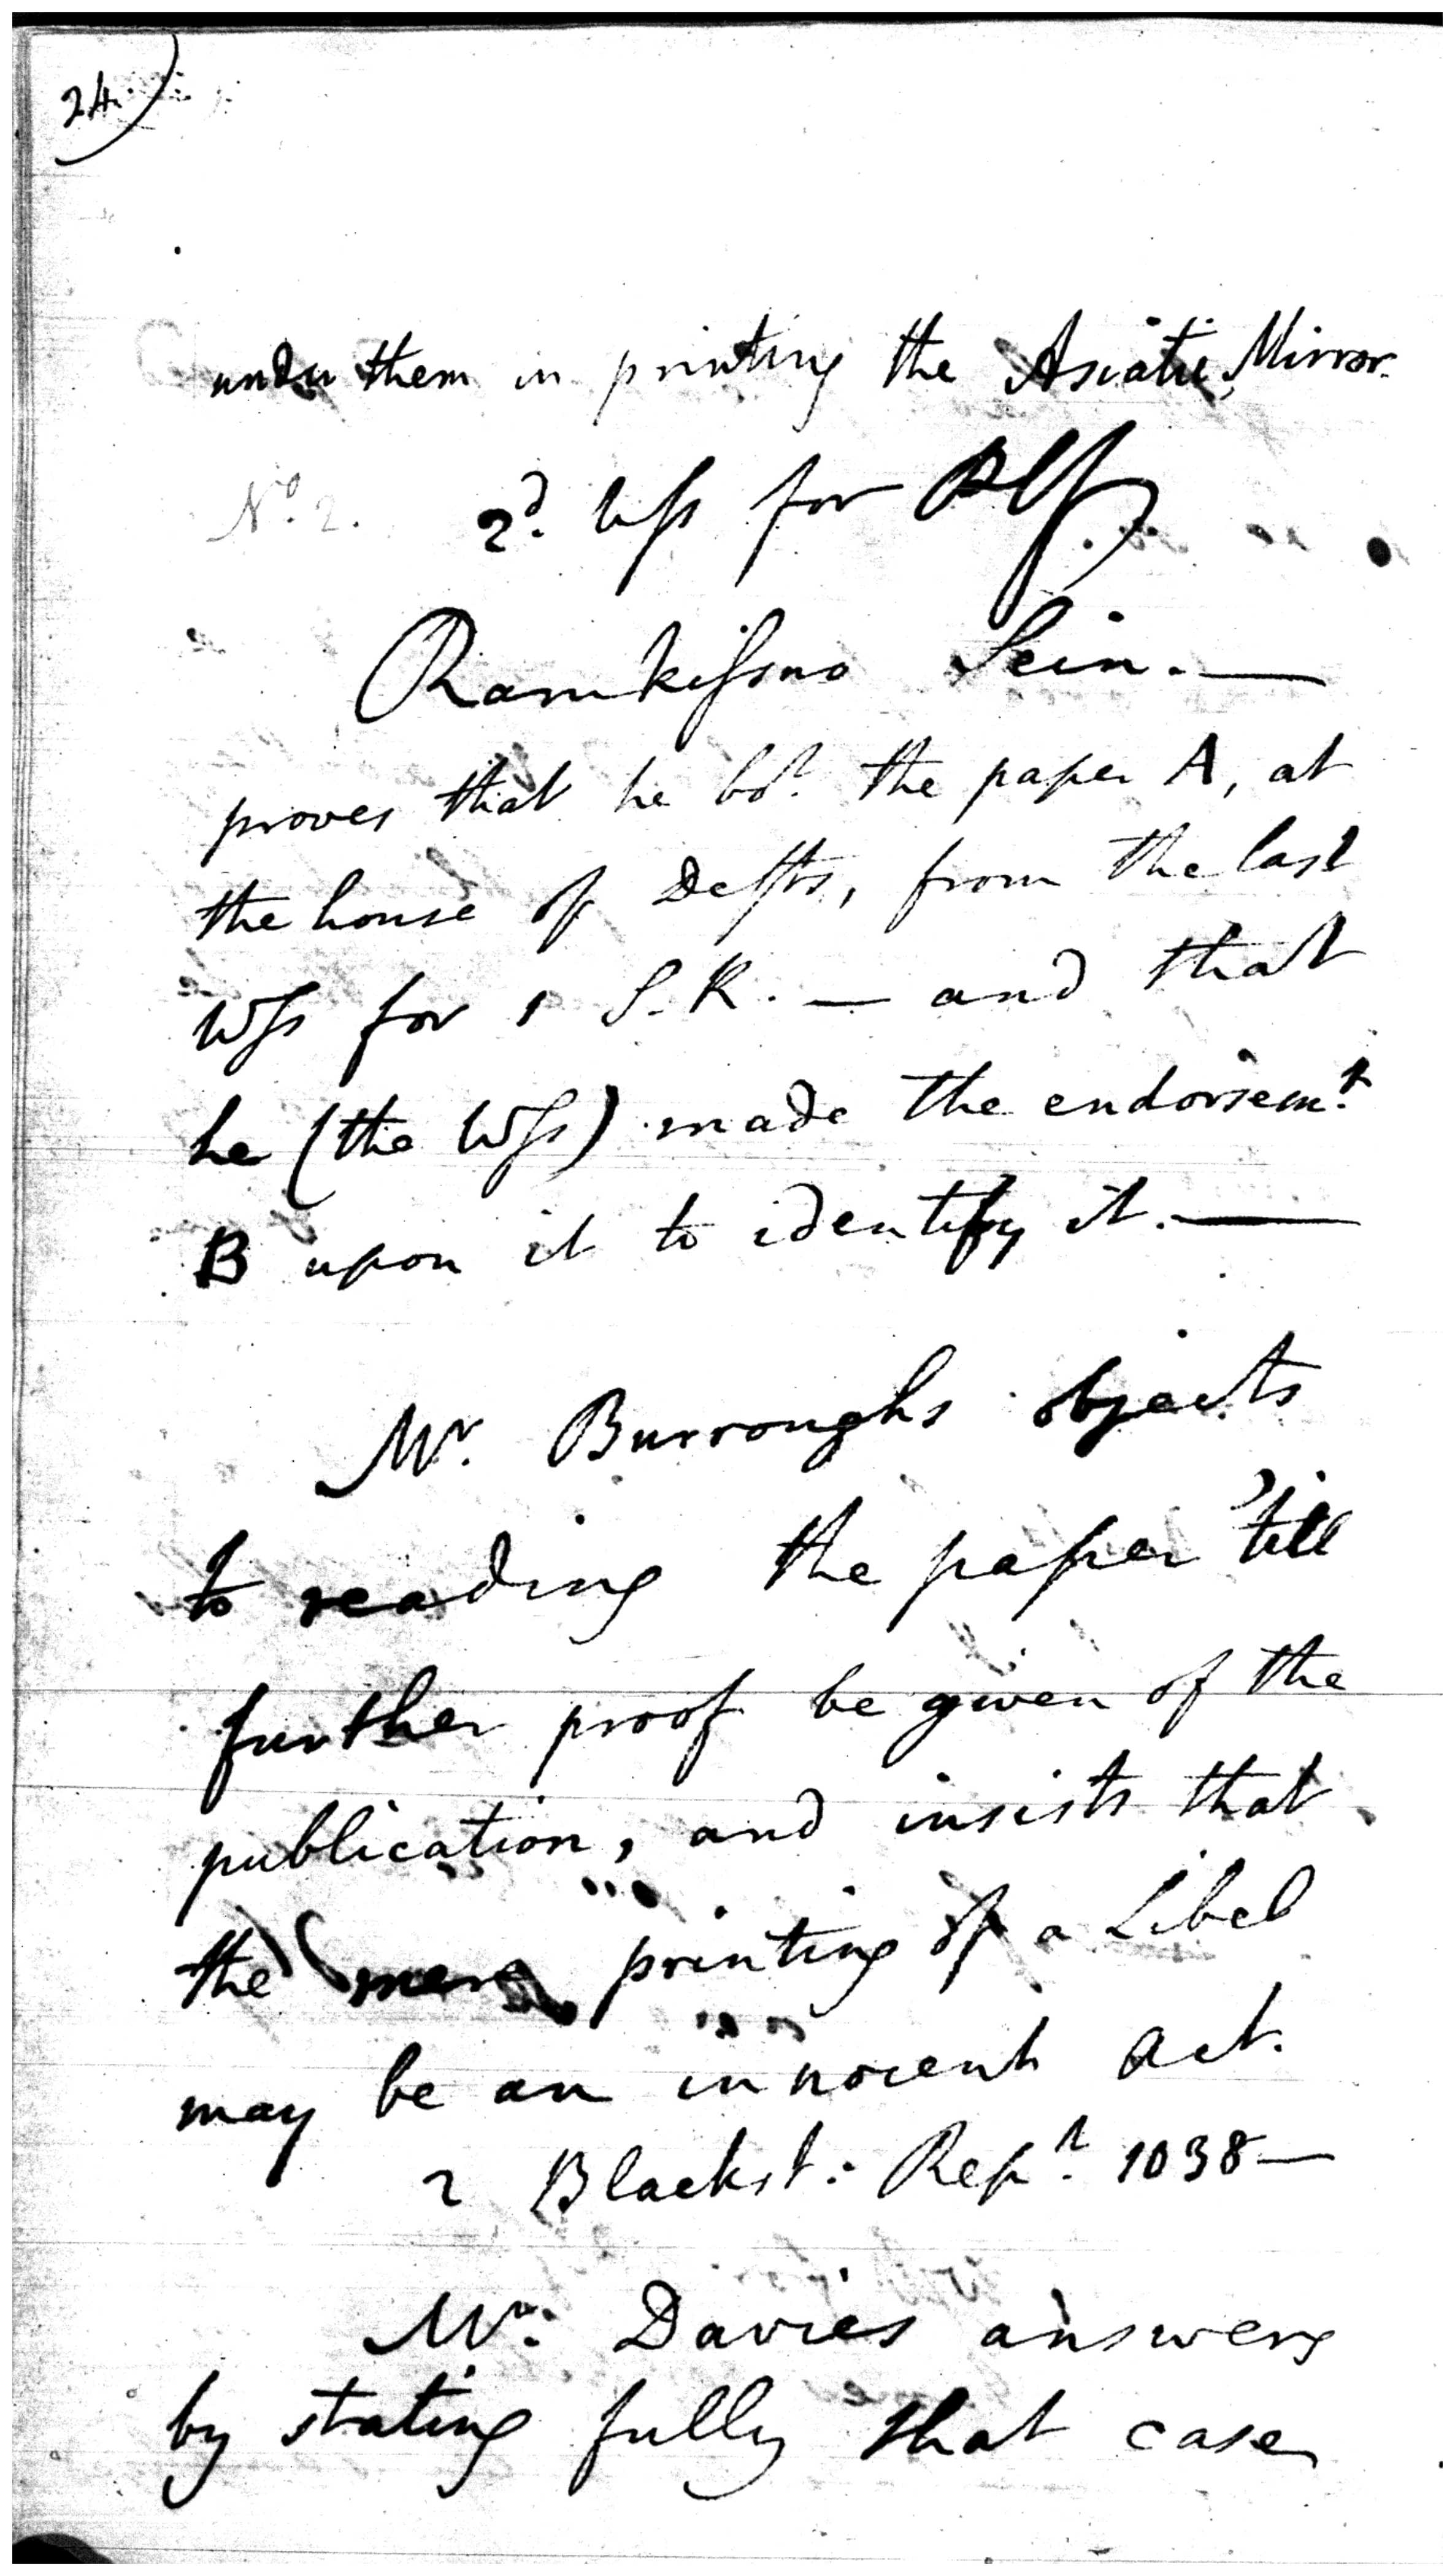 24)
under them in printing the Asiatic Mirror.
No. 2. 2d. Wss for Plff
Ramkissno Sein. —
proves that he bot. the paper A, at
the house of Defts, from the last
Wss for 1 S. R. — and that
he (the Wss) made the endorsemt.
B upon it to identify it. —
Mr. Burroughs objects
to reading the paper 'till
further proof be given of the
publication, and insists that
the mere printing of a Libel
may be an innocent act.
2 Blackst: Rept. 1038 —
Mr. Davies answers
by stating fully that case